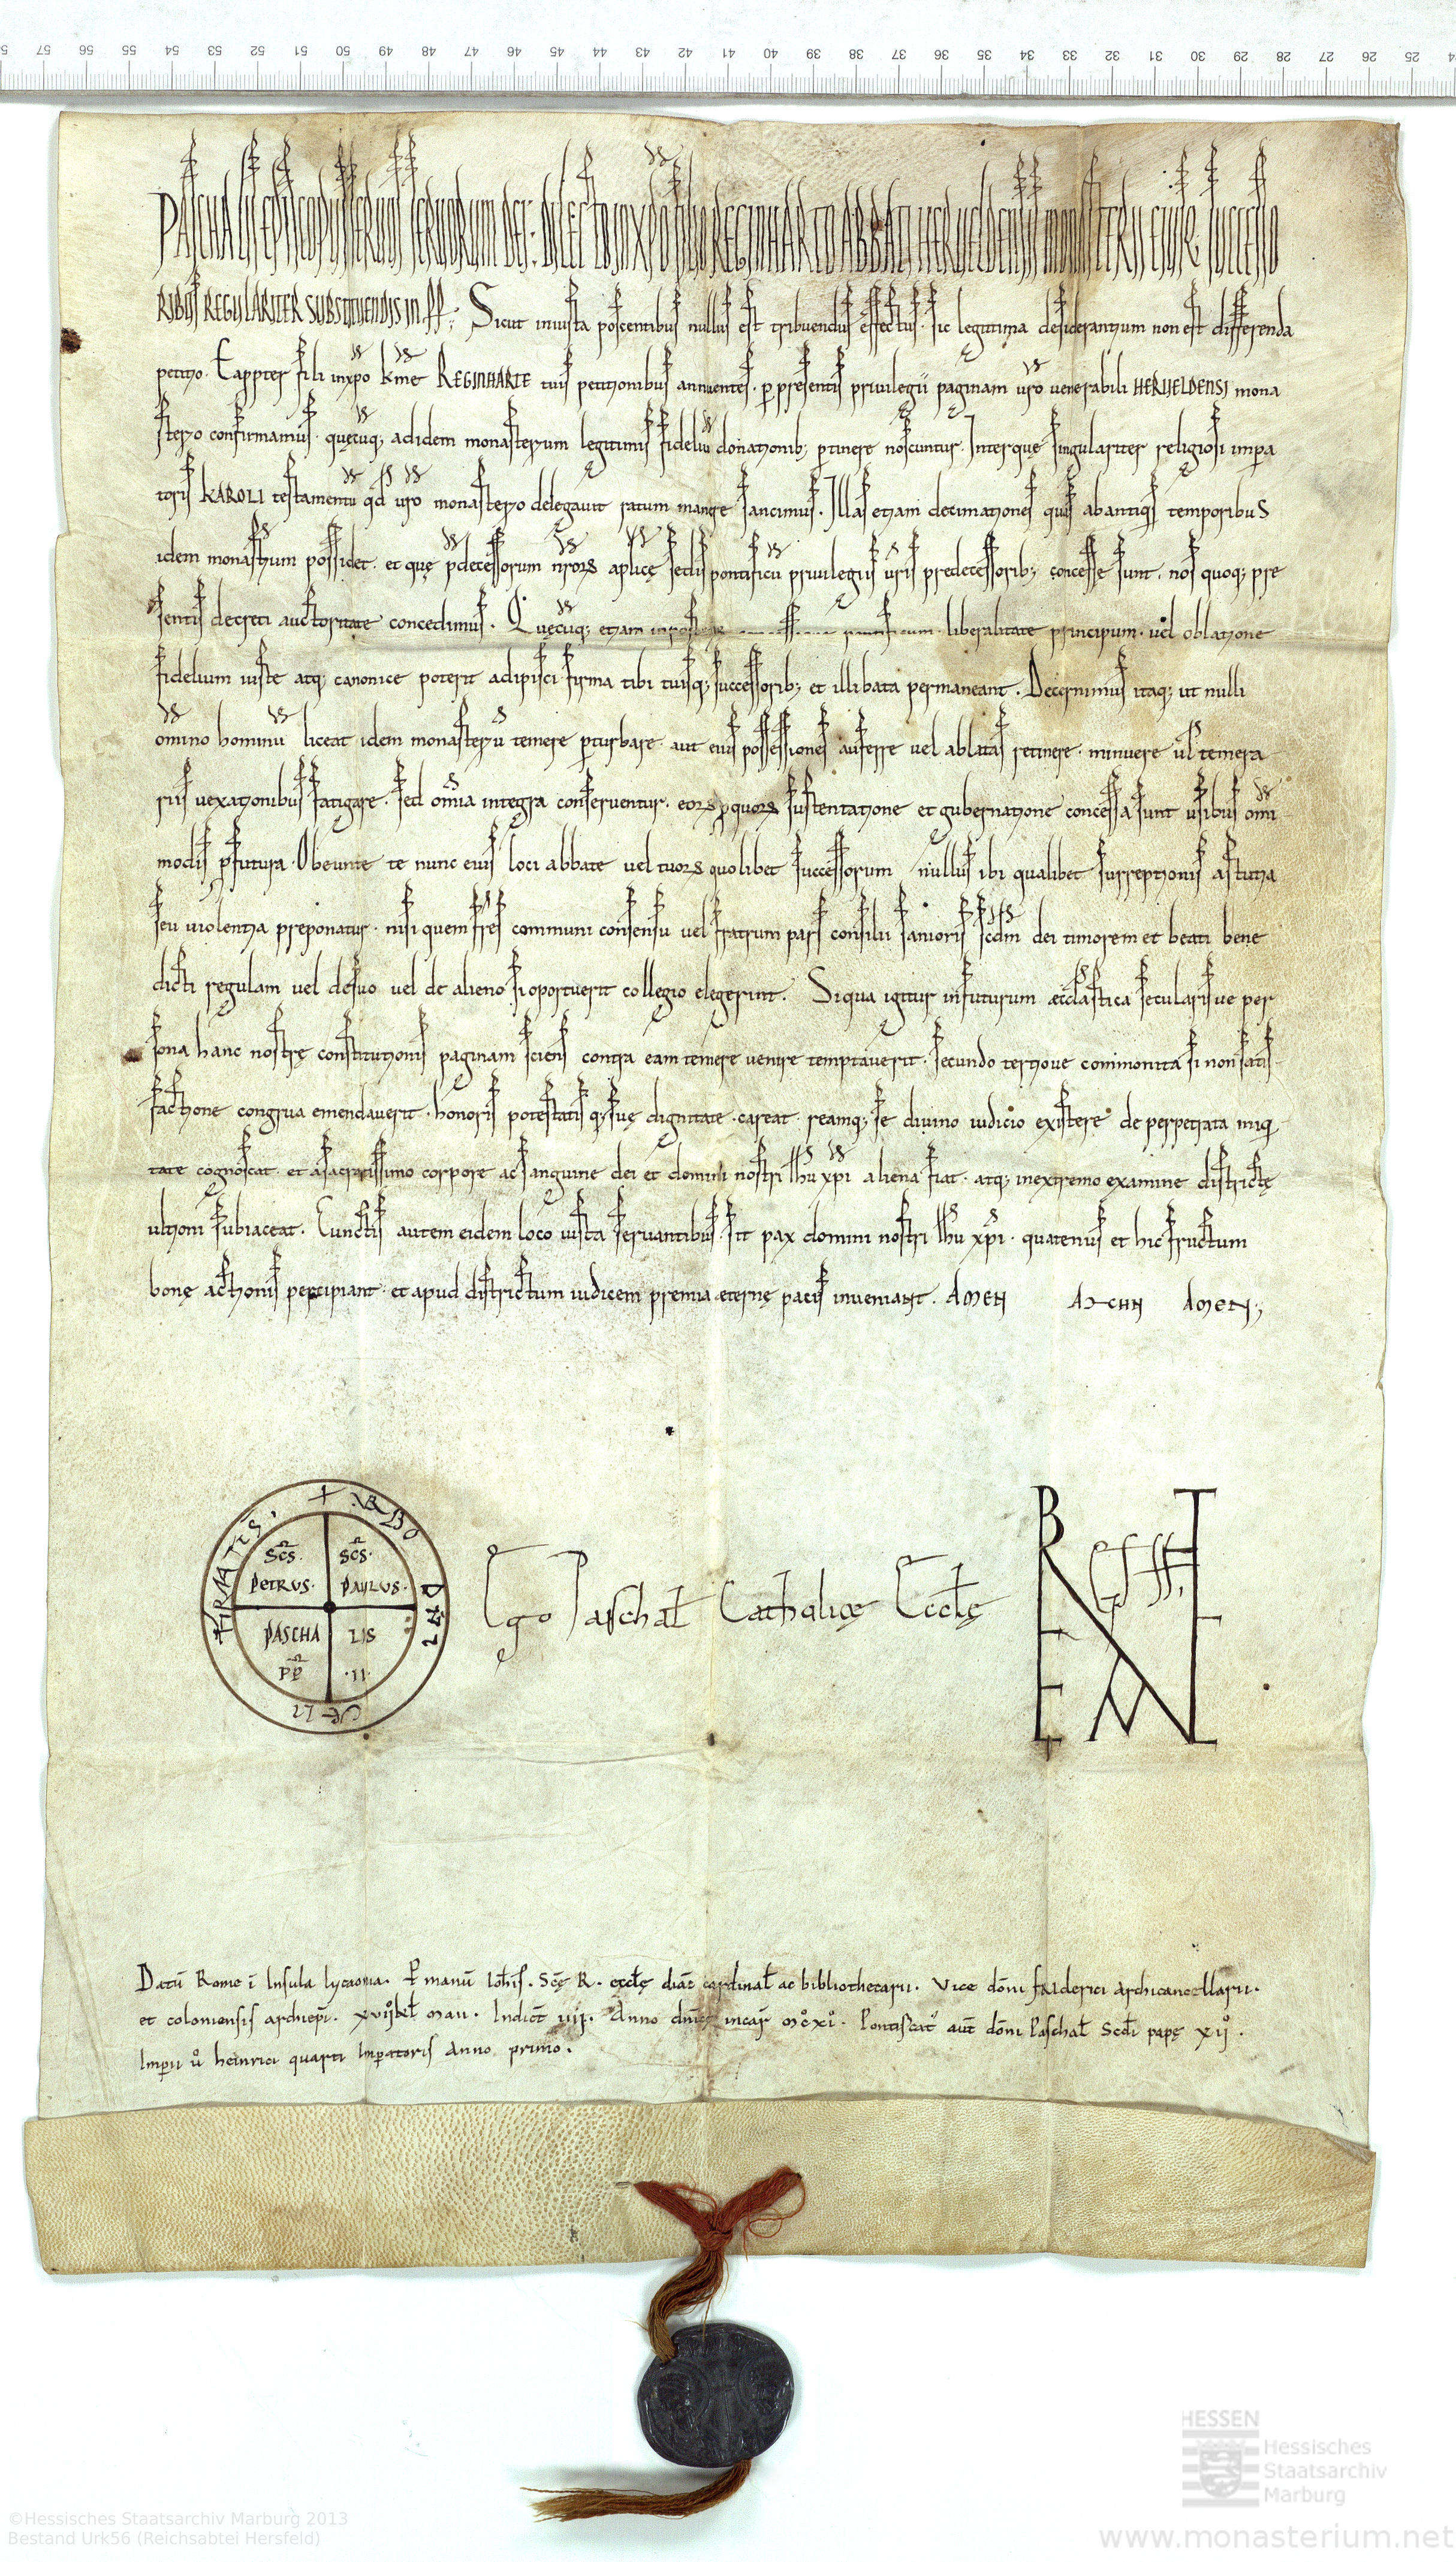 57 56 55 54 53 52 51 50 49 48 47 46 45 44 43 42 41 40 39 38 37 36 35 34 33 32 31 30 29 28 27 26 25
PASCHALIS EPISCOPUS SERVUS SERVORUM DEI. DILECTO IN XPO FILIO REGINHARTO ABBATI HERVELDENSIS MONASTERII EIUSQ; SUCCESSO
RIBUS REGULARITER SUBSTITUENDIS IN PP. Sicut iniusta poscentibus nullus est tribuendus effectus. sic legitima desiderantium non est differenda
petitio. Eappter fili in xpo kme REGINHARTE tuis petitionibus annuentes. p presentis privilegii paginam uro venerabili HERUELDENSI mona
sterio confirmamus. quęcuq; ad idem monasterium legitimis fideliu donationib; ptinere noscuntur. Interquę singulariter religiosi impa
toris KAROLI testamentu qd uro monasterio delegavit ratum manere sancimus. Illas etiam decimationes quas ab antiqis temporibus
idem monasthum possidet. et quę pdecessorum nrorꝝ aplicę sedis pontificu privilegiis uris predecessorib; concesse sunt. nos quoq; pre
sentis decreti auctoritate concedimus. Quęcuq; etiam liberalitate principum. uel oblatione
fidelium iuste atq; canonice poterit adipisci firma tibi tuisq; successorib; et illibata permaneant. Decernimus itaq; ut nulli
omino hominu liceat idem monasteriu temere pturbare. aut eius possessiones auferre vel ablatas retinere. minuere ul temera
riis uexationibus fatigare. sed omia integra conserventur. eorꝝ p quorꝝ sustentatione et gubernatione concessa sunt usibus omi
modis pfutura. Obeunte te nunc eius loci abbate vel tuorꝝ quolibet successorum nullus ibi qualibet surreptionis astutia
seu violentia preponatur. nisi quem frs communi consensu vel fratrum pars consilii sanioris scdm dei timorem et beati bene
dicti regulam vel de suo vel de alieno si oportuerit collegio elegerint. Siqua igitur in futurum ęcclastica secularisue per
sona hanc nostrę constitutionis paginam sciens contra eam temere venire temptaverit. secundo tertioue commonita si non satis
factione congrua emendaverit. honoris potestatisq; suę dignitate careat. reamq; se divino iudicio existere de perpetrata iniqi
tate cognoscat. et a sacratissimo corpore ac sanguine dei et domini nostri Ihu xpi aliena fiat. atq; in extremo examine districtę
ultioni subiaceat. Cunctis autem eidem loco iusta servantibus sit pax domini nostri Ihu xpi. quatenus et hic fructum
bonę actionis percipiant. et apud districtum iudicem premia ęternę pacis inveniant. AMEN AMEN AMEN;
+ VERBO DNI CELI FIRMATI S.
SCS. PETRUS. SCS. PAULUS.
PASCHA LIS
PP .II.
Ego Paschal Catholicę Ecclę
Datu Rome i Insula lycaonia. P manu Iohis. Scę R. ęcclę diac cardinal ac bibliothecarii. Vice domi friderici archicancellarii.
et coloniensis archiepi. xvij kl maii. Indict iiij. Anno dnicę incar mcxi. Pontificat aut domi Paschal Scdi papę xij.
Imperii u heinrici quarti Impatoris anno primo.
HESSEN
Hessisches
Staatsarchiv
Marburg
©Hessisches Staatsarchiv Marburg 2013
Bestand Urk56 (Reichsabtei Hersfeld)
www.monasterium.net